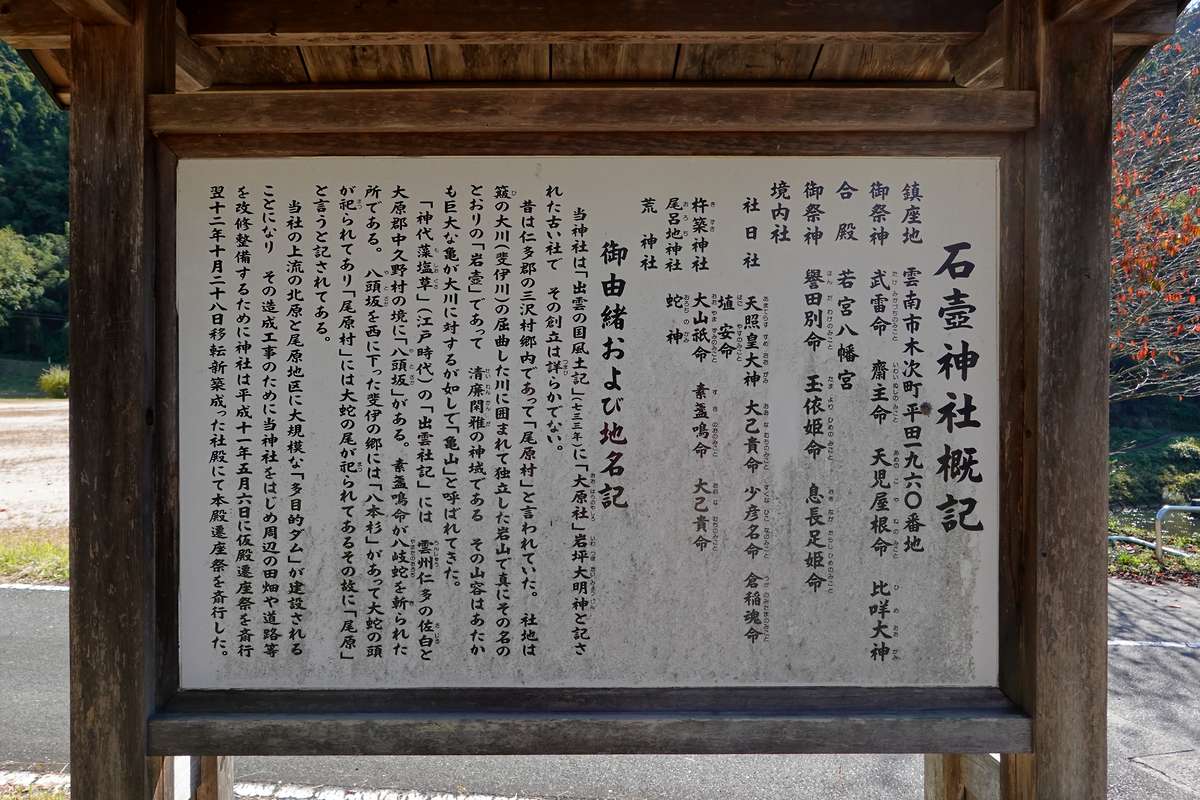 石壷神社概記
鎮座地　雲南市木次町平田一九六〇番地
御祭神　武雷命　齋主命　天児屋根命　比咩大神
合殿　若宮八幡宮
御祭神　譽田別命　玉依姫命　息長足姫命
境内社
社日社　天照皇大神　大己貴命　少彦名命　倉稲魂命
埴安命
杵築神社　大山祇命　素盞鳴命　大己貴命
尾呂地神社　蛇神
荒神社
御由緒および地名記
当神社は「出雲の国風土記」(七三三年)に「大原社」岩坪大明神と記さ
れた古い社で　その創立は詳らかでない。
昔は仁多郡の三沢村郷内であって「尾原村」と言われていた。社地は
簸の大川(斐伊川)の屈曲した川に囲まれて独立した岩山で真にその名の
とおりの「岩壺」であって　清廉閑雅の神域である　その山容はあたか
も巨大な亀が大川に対するが如して「亀山」と呼ばれてきた。
「神代藻塩草」(江戸時代)の「出雲社記」には　雲州仁多の佐白と
大原郡中久野村の境に「八頭坂」がある。素盞鳴命が八岐蛇を斬られた
所である。八頭坂を西に下った斐伊の郷には「八本杉」があって大蛇の頭
が祀られてあり「尾原村」には大蛇の尾が祀られてあるその故に「尾原」
と言うと記されてある。
当社の上流の北原と尾原地区に大規模な「多目的ダム」が建設される
ことになり　その造成工事のために当神社をはじめ周辺の田畑や道路等
を改修整備するために神社は平成十一年五月六日に仮殿遷座祭を斎行
翌十二年十月二十八日移転新築成った社殿にて本殿遷座祭を斎行した。